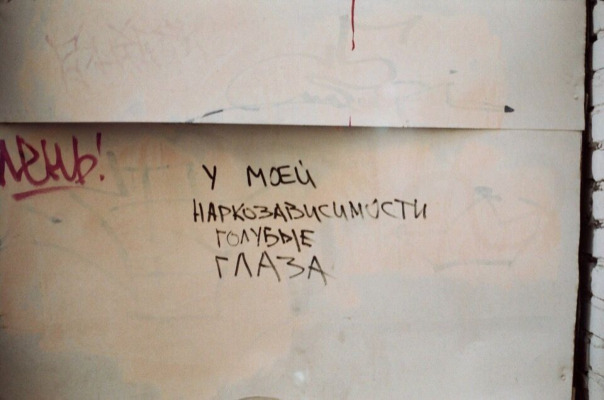 лень!
У МОЕЙ
НАРКОЗАВИСИМОСТИ
ГОЛУБЫЕ
ГЛАЗА